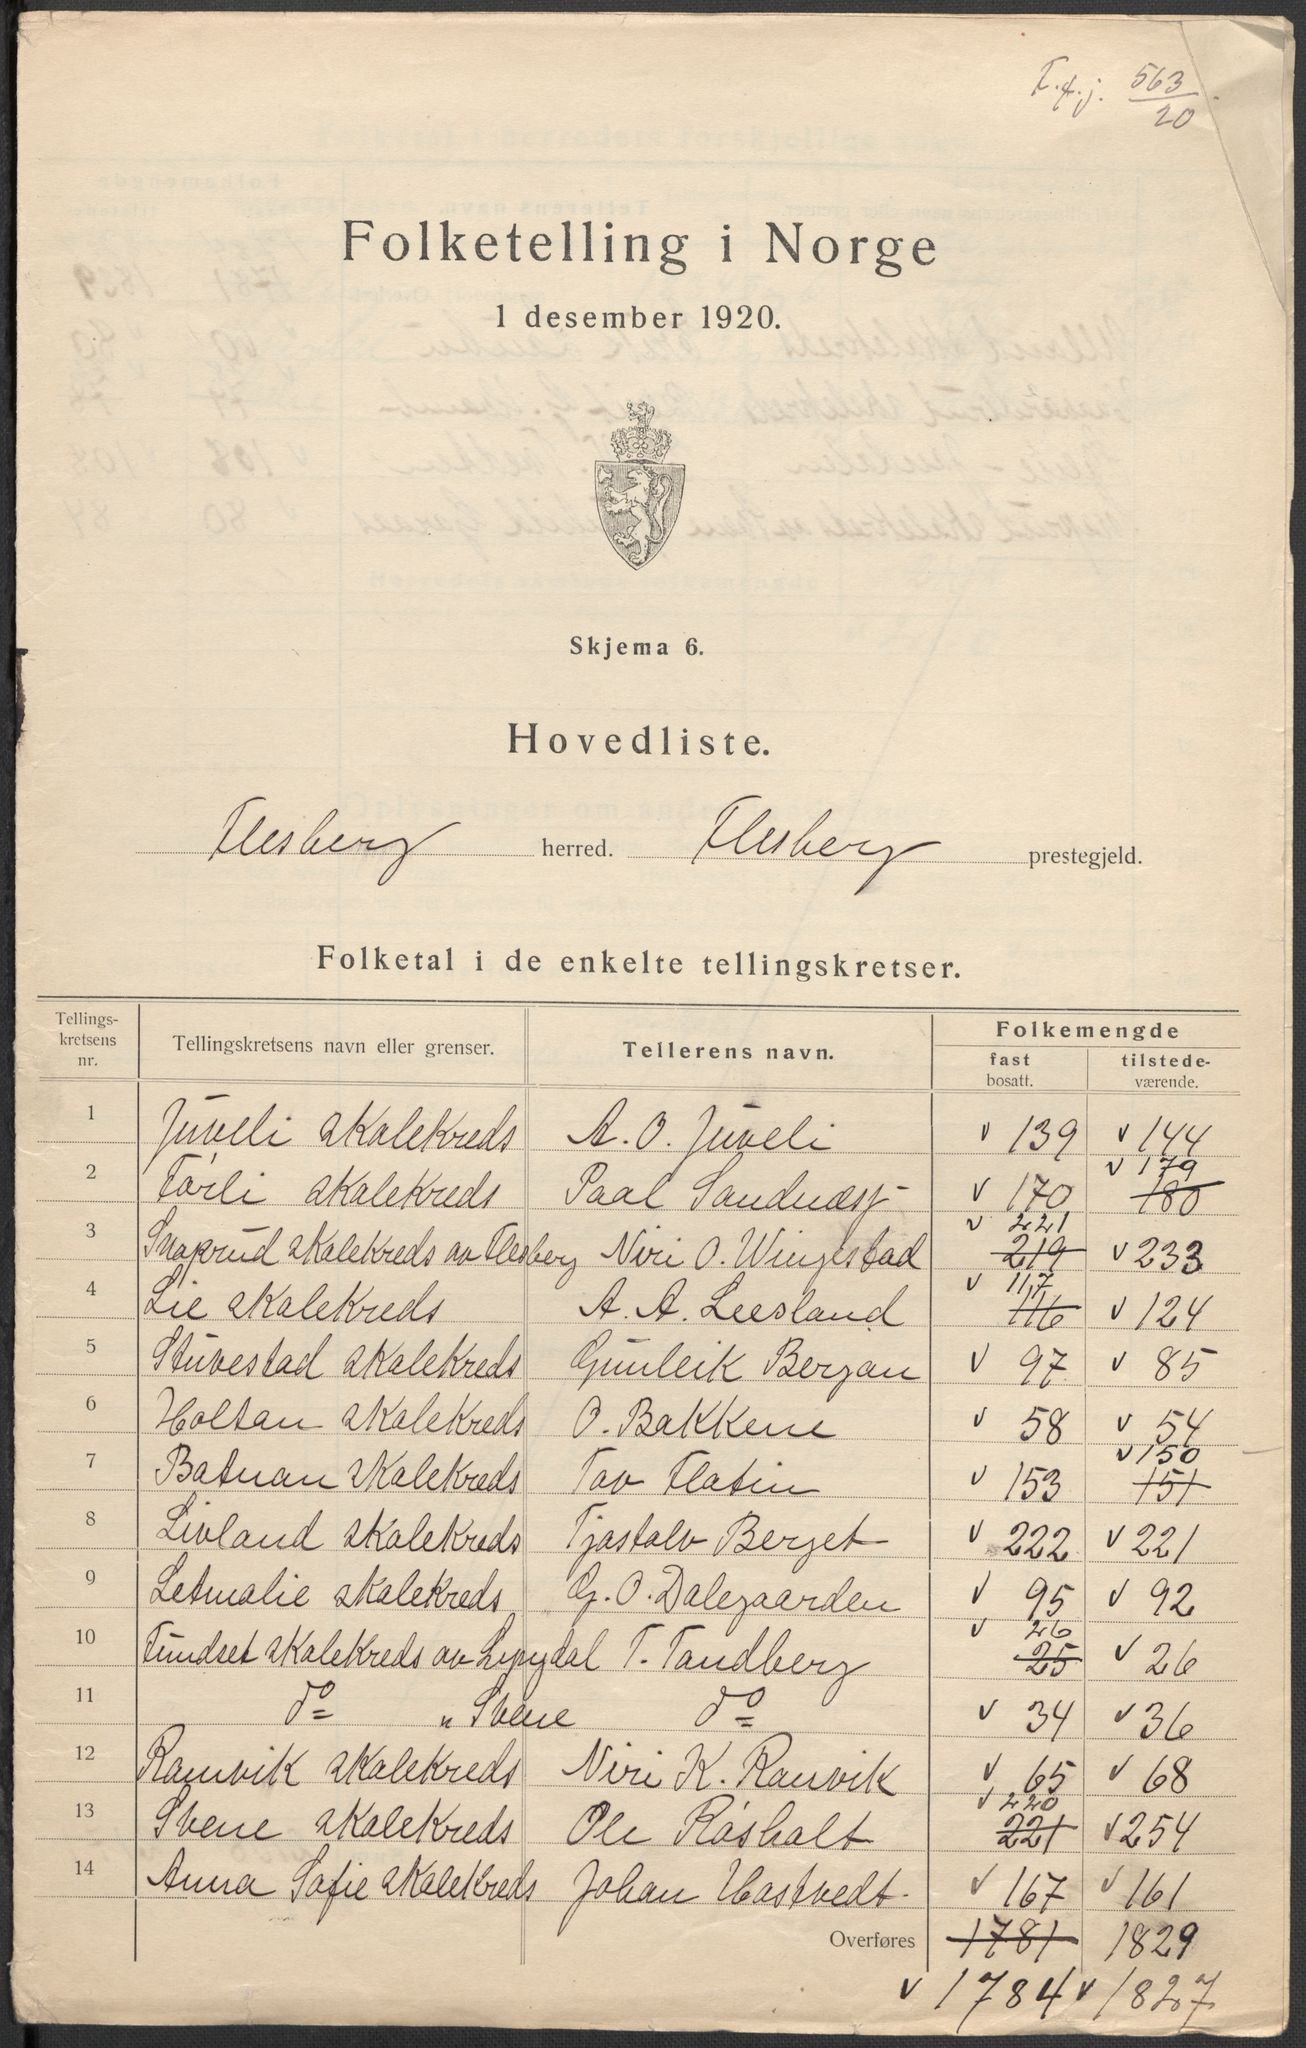 F.t.j. 563/20
Folketelling i Norge
1 desember 1920.
Skjema 6.
Hovedliste.
Flesberg herred. Flesberg prestegjeld.
Folketal i de enkelte tellingskretser.
Tellings-kretsens nr. Tellingskretsens navn eller grenser. Tellerens navn. Folkemengde
fast bosatt. tilstede-værende.
1 Juveli skolekreds A. O. Juveli v 139 v 144
2 Førli skolekreds Paal Sandnæs v 170 180 v 179
3 Snaprud skolekreds av Flesberg Niri O. Wingestad 219 v 221 v 233
4 Lie skolekreds A. A. Leesland 116 v 117 v 124
5 Stuvestad skolekreds Gunleik Bergan v 97 v 85
6 Holtan skolekreds O. Bakkene v 58 v 54
7 Batnan skolekreds Tov Flatin v 153 151 v 150
8 Livland skolekreds Tjøstolv Berget v 222 v 221
9 Letmolie skolekreds G. O. Dalegaarden v 95 v 92
10 Tundset skolekreds av Lyngdal T. Tandberg 25 v 26 v 26
11 do " Svene do v 34 v 36
12 Ramvik skolekreds Niri K. Ranvik v 65 v 68
13 Svene skolekreds Ole Råsholt 221 v 220 v 254
14 Anna Sofie skolekreds Johan Hostvedt v 167 v 161
Overføres 1781 1829
v 1784 v 1827